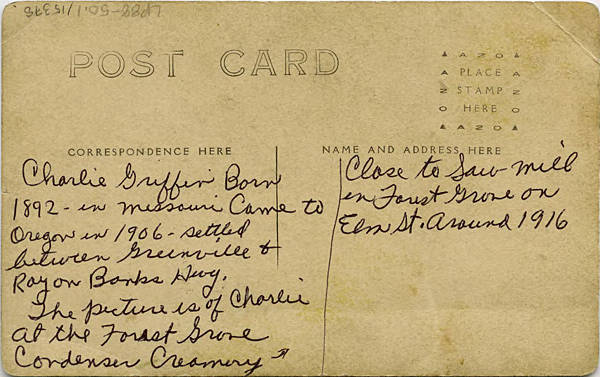 LP88-50.1/15375
POST CARD
AZO
PLACE
STAMP
HERE
AZO
CORRESPONDENCE HERE
NAME AND ADDRESS HERE
Charlie Griffin Born
1892 - in Missouri Came to
Oregon in 1906 - settled
between Greenville &
Roy on Banks Hwy.
The picture is of Charlie
at the Forest Grove
Condenser Creamery
Close to Saw-mill
in Forest Grove on
Elm St. Around 1916